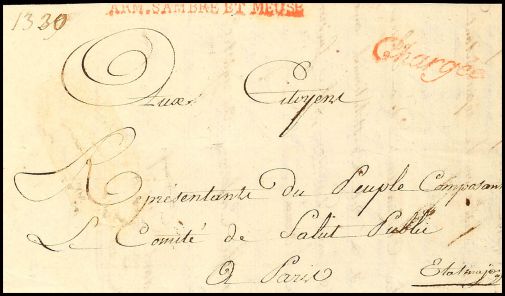 1339
ARM. SAMBRE ET MEUSE
Chargée
Aux Citoyens
Représentants du Peuple Composant
Le Comité de Salut Public
A Paris
Etatmajor